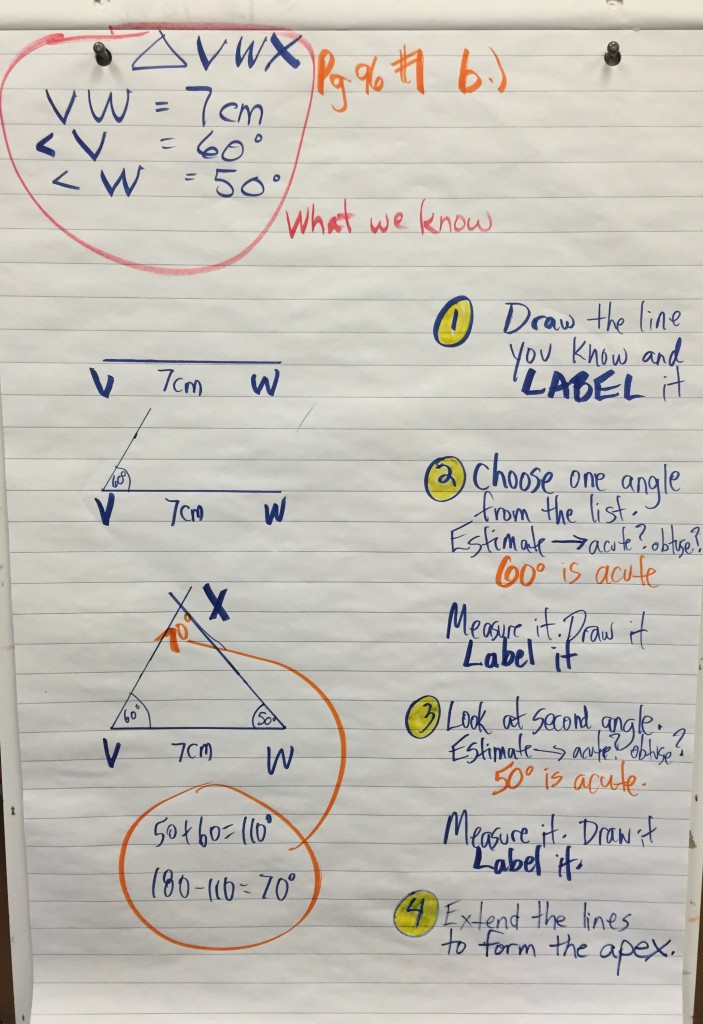 △ VWX
Pg. 96 #1 b.)
VW = 7cm
< V = 60°
< W = 50°
What we know
1 Draw the line
you know and
LABEL it
V 7cm W
60°
V 7cm W
2 Choose one angle
from the list.
Estimate → acute? obtuse?
60° is acute
Measure it. Draw it
Label it
X
70°
60° 50°
V 7cm W
3 Look at second angle.
Estimate → acute? obtuse?
50° is acute.
Measure it. Draw it
Label it.
50+60=110°
180-110=70°
4 Extend the lines
to form the apex.